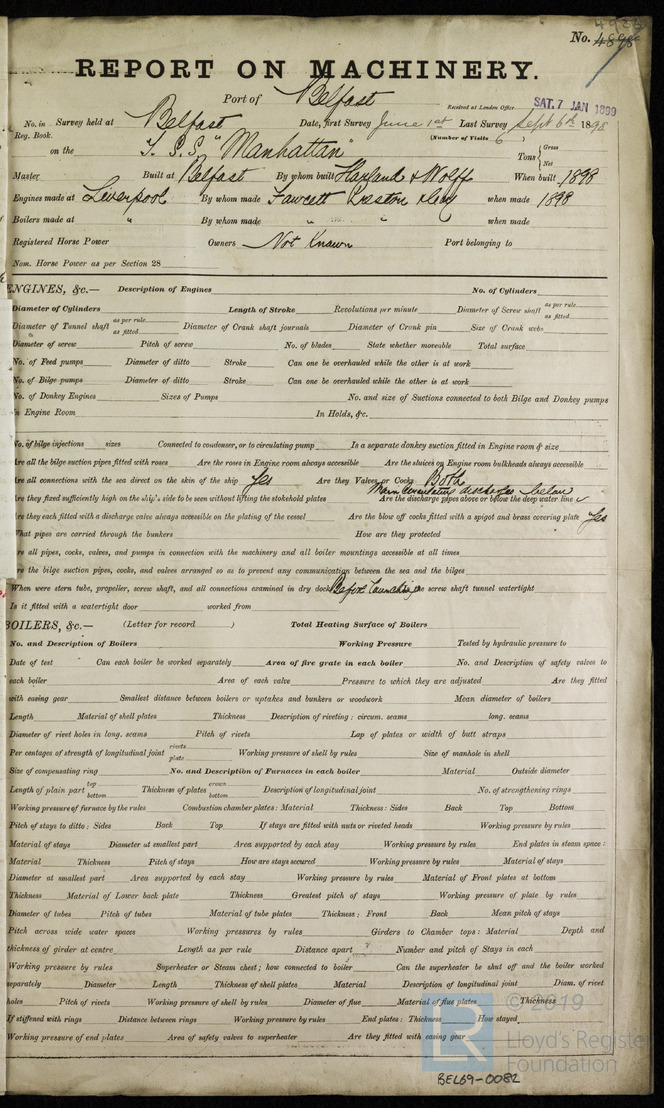 4923
No. 4898
REPORT ON MACHINERY.
Port of Belfast
Received at London Office SAT. 7 JAN 1899
No. in Survey held at Belfast Date, first Survey June 1st Last Survey Sept 6th 1898
Reg. Book. (Number of Visits 6
on the T.S.S. "Manhattan" Tons { Gross Net
Master Built at Belfast By whom built Harland & Wolff When built 1898
Engines made at Liverpool By whom made Fawcett Preston when made 1898
Boilers made at " By whom made " " when made
Registered Horse Power Owners Not Known Port belonging to
Nom. Horse Power as per Section 28
ENGINES, &c.— Description of Engines No. of Cylinders
Diameter of Cylinders Length of Stroke Revolutions per minute Diameter of Screw shaft as per rule as fitted
Diameter of Tunnel shaft as per rule as fitted Diameter of Crank shaft journals Diameter of Crank pin Size of Crank webs
Diameter of screw Pitch of screw No. of blades State whether moveable Total surface
No. of Feed pumps Diameter of ditto Stroke Can one be overhauled while the other is at work
No. of Bilge pumps Diameter of ditto Stroke Can one be overhauled while the other is at work
No. of Donkey Engines Sizes of Pumps No. and size of Suctions connected to both Bilge and Donkey pumps
In Engine Room In Holds, &c.
No. of bilge injections sizes Connected to condenser, or to circulating pump Is a separate donkey suction fitted in Engine room & size
Are all the bilge suction pipes fitted with roses Are the roses in Engine room always accessible Are the sluices on Engine room bulkheads always accessible
Are all connections with the sea direct on the skin of the ship Yes Are they Valves or Cocks Both
Main circulating discharges below
Are they fixed sufficiently high on the ship's side to be seen without lifting the stokehold plates Are the discharge pipes above or below the deep water line
Are they each fitted with a discharge valve always accessible on the plating of the vessel Are the blow off cocks fitted with a spigot and brass covering plate Yes
What pipes are carried through the bunkers How are they protected
Are all pipes, cocks, valves, and pumps in connection with the machinery and all boiler mountings accessible at all times
Are the bilge suction pipes, cocks, and valves arranged so as to prevent any communication between the sea and the bilges
When were stern tube, propeller, screw shaft, and all connections examined in dry dock Before launching the screw shaft tunnel watertight
Is it fitted with a watertight door worked from
BOILERS, &c.— (Letter for record ) Total Heating Surface of Boilers
No. and Description of Boilers Working Pressure Tested by hydraulic pressure to
Date of test Can each boiler be worked separately Area of fire grate in each boiler No. and Description of safety valves to
each boiler Area of each valve Pressure to which they are adjusted Are they fitted
with easing gear Smallest distance between boilers or uptakes and bunkers or woodwork Mean diameter of boilers
Length Material of shell plates Thickness Description of riveting: circum. seams long. seams
Diameter of rivet holes in long. seams Pitch of rivets Lap of plates or width of butt straps
Per centages of strength of longitudinal joint rivets plate Working pressure of shell by rules Size of manhole in shell
Size of compensating ring No. and Description of Furnaces in each boiler Material Outside diameter
Length of plain part top bottom Thickness of plates crown bottom Description of longitudinal joint No. of strengthening rings
Working pressure of furnace by the rules Combustion chamber plates: Material Thickness: Sides Back Top Bottom
Pitch of stays to ditto: Sides Back Top If stays are fitted with nuts or riveted heads Working pressure by rules
Material of stays Diameter at smallest part Area supported by each stay Working pressure by rules End plates in steam space:
Material Thickness Pitch of stays How are stays secured Working pressure by rules Material of stays
Diameter at smallest part Area supported by each stay Working pressure by rules Material of Front plates at bottom
Thickness Material of Lower back plate Thickness Greatest pitch of stays Working pressure of plate by rules
Diameter of tubes Pitch of tubes Material of tube plates Thickness: Front Back Mean pitch of stays
Pitch across wide water spaces Working pressures by rules Girders to Chamber tops: Material Depth and
thickness of girder at centre Length as per rule Distance apart Number and pitch of Stays in each
Working pressure by rules Superheater or Steam chest; how connected to boiler Can the superheater be shut off and the boiler worked
separately Diameter Length Thickness of shell plates Material Description of longitudinal joint Diam. of rivet
holes Pitch of rivets Working pressure of shell by rules Diameter of flue Material of flue plates Thickness
If stiffened with rings Distance between rings Working pressure by rules End plates: Thickness How stayed
Working pressure of end plates Area of safety valves to superheater Are they fitted with easing gear
© 2019
Lloyd's Register
Foundation
BEL69-0082